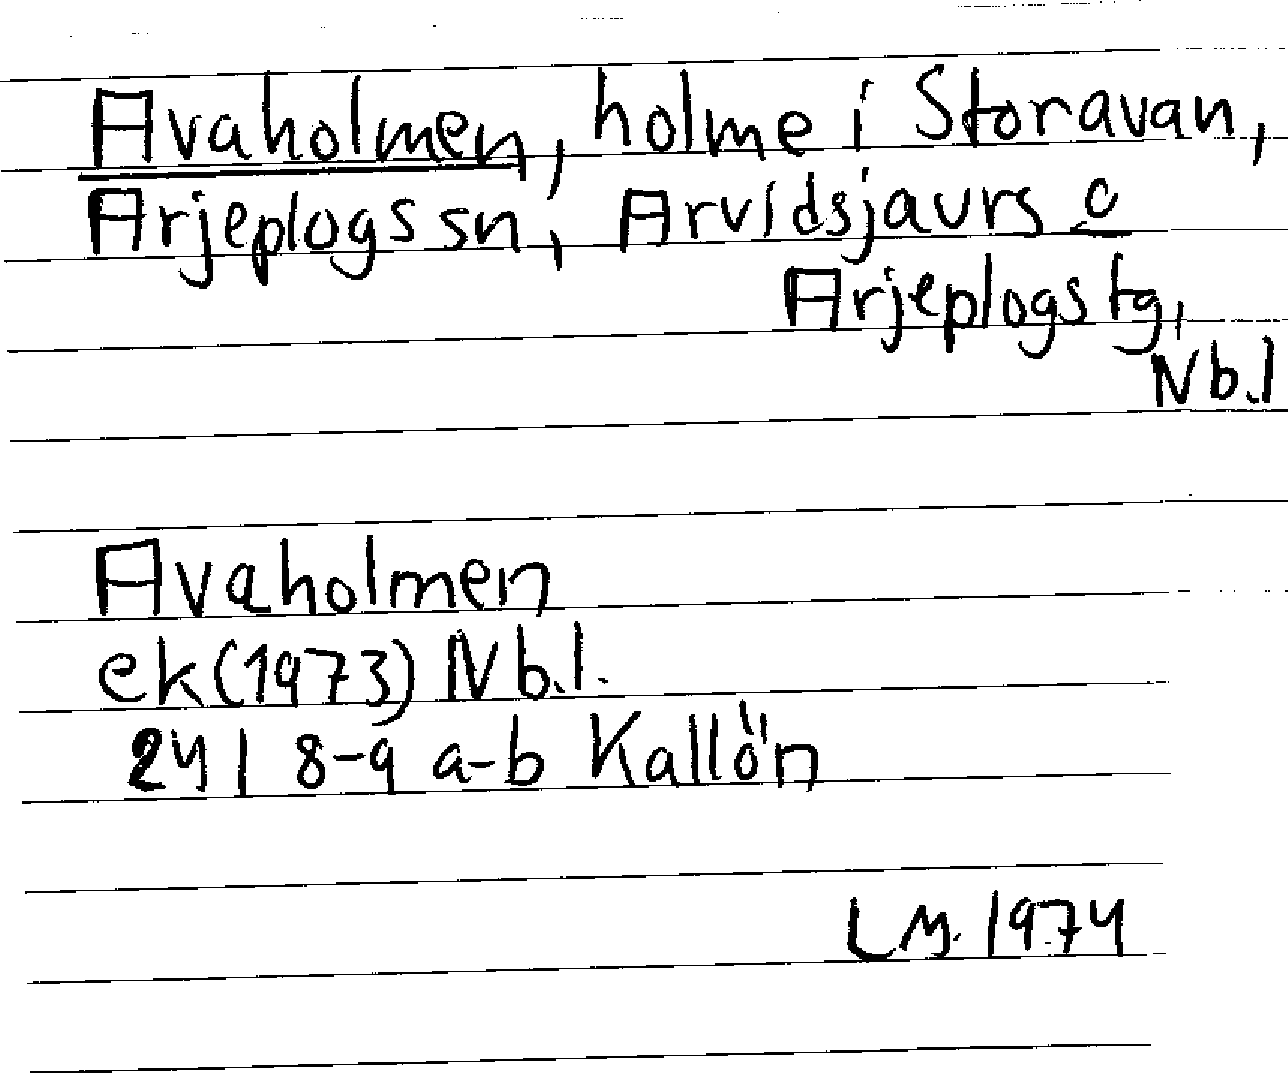 Avaholmen, holme i Storavan,
Arjeplogs sn, Arvidsjaurs o
Arjeplogs tg,
Nb.l
Avaholmen
ek (1973) Nb.l.
24 I 8-9 a-b Kallön
LM. 1974